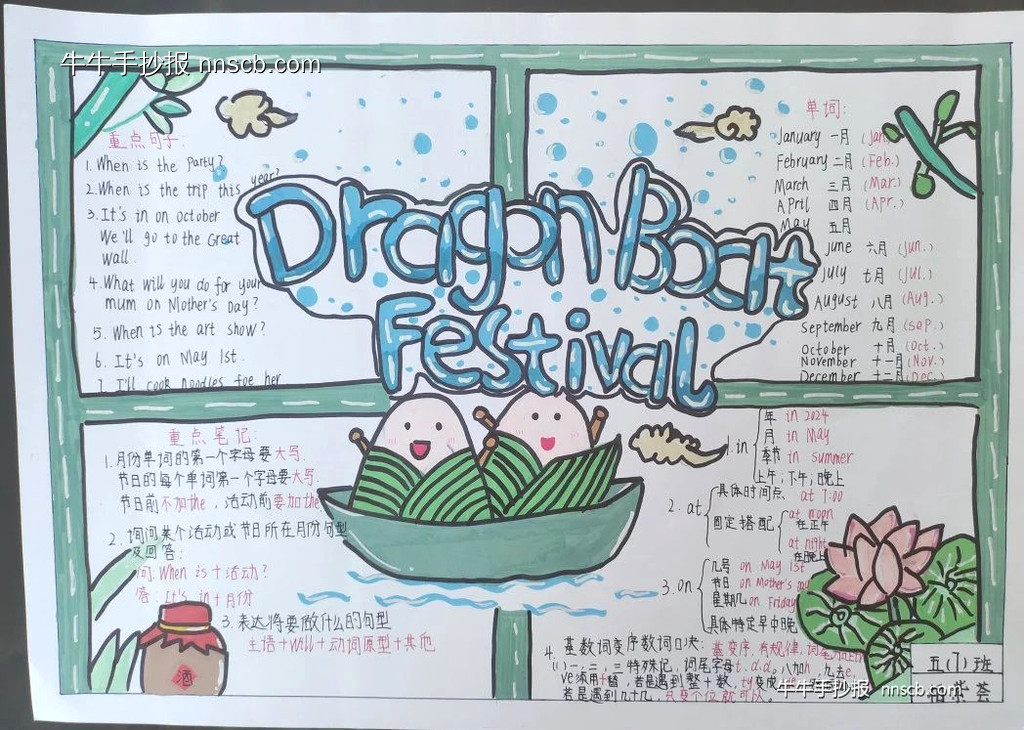 牛牛手抄报 nnscb.com
Dragon Boat
Festival
重点句子:
1. When is the Party?
2. When is the trip this year?
3. It's in on october
We'll go to the Great
wall.
4. What will you do for your
mum on Mother's Day?
5. When is the art show?
6. It's on May 1st.
I'll cook noodles foe her
单词:
January 一月 (Jan
February 二月 (Feb.)
March 三月 (Mar.)
April 四月 (Apr.)
May 五月
june 六月 (Jun.)
july 七月 (Jul.)
August 八月 (Aug.)
september 九月 (sep.)
October 十月 (Oct.)
November 十一月 (Nov.)
December 十二月 (Dec.)
重点笔记:
1. 月份单词的第一个字母要大写.
节日的每个单词第一个字母要大写.
节日前不加the，活动前要加the
2. 询问某个活动或节日所在月份句型
及回答:
问: When is + 活动?
答: It's in + 月份
3. 表达将要做什么的句型
主语+will+动词原型+其他
酒
1. in
年 in 2024
月 in May
季节 in summer
上午，下午，晚上
2. at
具体时间点 at 7:00
固定搭配
at noon
在正午
at night
在晚上
3. on
几号 on May 1st
节日 on Mother's
星期几 on Friday
具体特定早中晚
4. 基数词变序数词口诀: 基变序, 有规律, 词尾
(1) 一, 二, 三特殊记, 词尾字母t.d.d. 八加h, 九去e,
ve须用f替, 若是遇到整十数, ty变成
若是遇到几十几, 只变个位就可以.
五(7)班
牛牛手抄报 nnscb.com